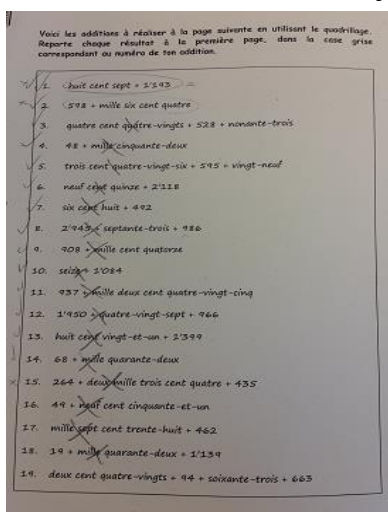 Voici les additions à réaliser à la page suivante en utilisant le quadrillage.
Reporte chaque résultat à la première page, dans la case grise
correspondant au numéro de ton addition.
1. huit cent sept + 1'193 =
2. 598 + mille six cent quatre
3. quatre cent quatre-vingts + 528 + nonante-trois
4. 48 + mille cinquante-deux
5. trois cent quatre-vingt-six + 595 + vingt-neuf
6. neuf cent quinze + 2'118
7. six cent huit + 492
8. 2'945 + septante-trois + 986
9. 908 + mille cent quatorze
10. seize + 1'084
11. 937 + mille deux cent quatre-vingt-cinq
12. 1'950 + quatre-vingt-sept + 966
13. huit cent vingt-et-un + 1'399
14. 68 + mille quarante-deux
15. 264 + deux mille trois cent quatre + 435
16. 49 + neuf cent cinquante-et-un
17. mille sept cent trente-huit + 462
18. 19 + mille quarante-deux + 1'139
19. deux cent quatre-vingts + 94 + soixante-trois + 663